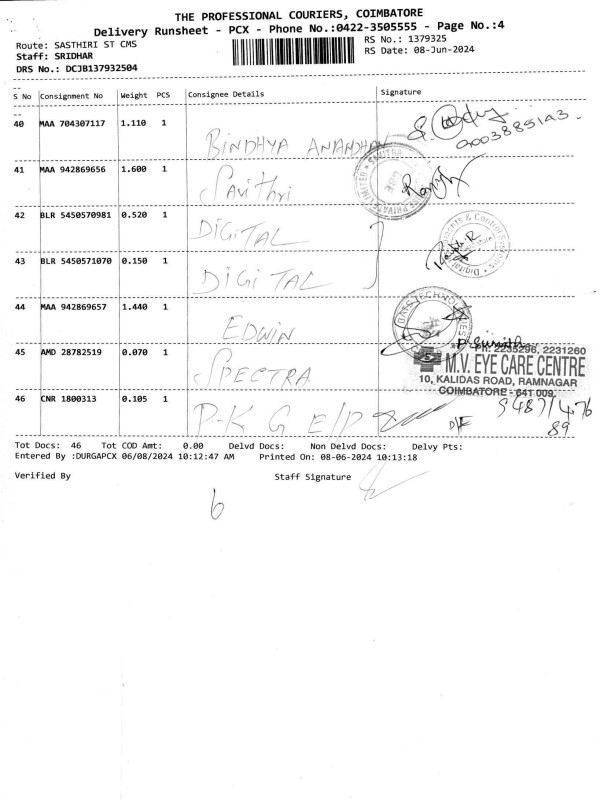 THE PROFESSIONAL COURIERS, COIMBATORE
Delivery Runsheet - PCX - Phone No.:0422-3505555 - Page No.:4
Route: SASTHIRI ST CMS
RS No.: 1379325
Staff: SRIDHAR
RS Date: 08-Jun-2024
DRS No.: DCJB137932504
S No Consignment No Weight PCS Consignee Details Signature
40 MAA 704307117 1.110 1
BINDHYA ANANDHAN
41 MAA 942869656 1.600 1
Savithri
42 BLR 5450570981 0.520 1
DIGITAL
43 BLR 5450571070 0.150 1
DIGITAL
44 MAA 942869657 1.440 1
EDWIN
45 AMD 28782519 0.070 1
SPECTRA
PH: 2235296, 2231260
M.V. EYE CARE CENTRE
10, KALIDAS ROAD, RAMNAGAR
COIMBATORE - 641 009.
46 CNR 1800313 0.105 1
P-K G E/P
94871476
89
Tot Docs: 46 Tot COD Amt: 0.00 Delvd Docs: Non Delvd Docs: Delvy Pts:
Entered By :DURGAPCX 06/08/2024 10:12:47 AM Printed On: 08-06-2024 10:13:18
Verified By Staff Signature
6